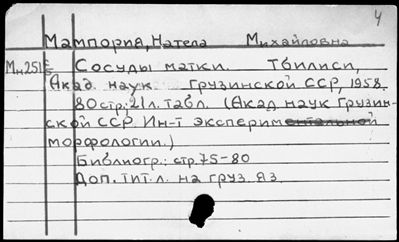 4
Мампория, Натела Михайловна
Мн251 Сосуды матки. Тбилиси,
Акад. наук Грузинской ССР, 1958.
80 стр; 21 л. табл. (Акад наук Грузин-
ской ССР. Ин-т экспериментальной
морфологии.)
Библиогр.: стр. 75-80
Доп. тит. л. на груз. яз.